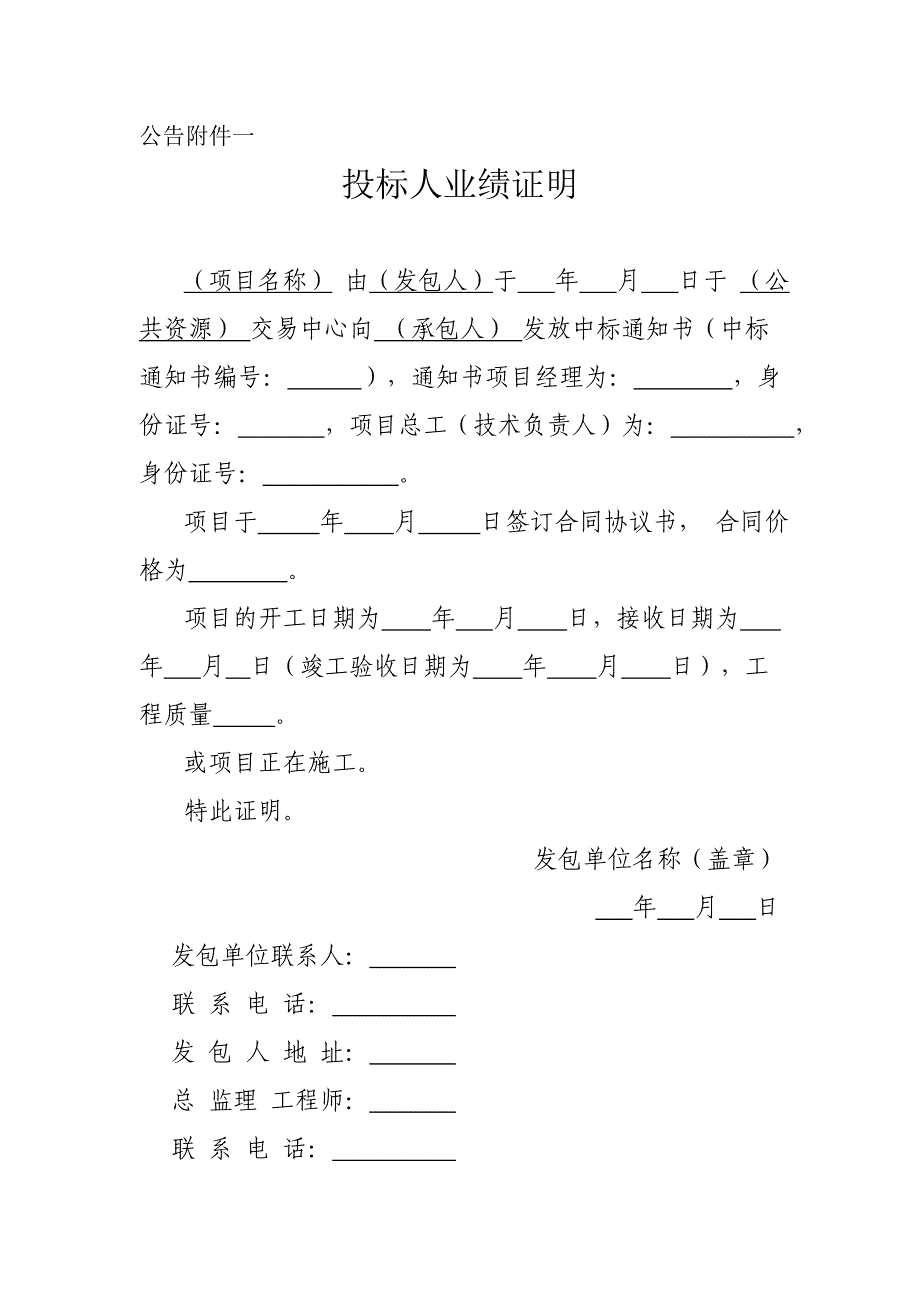 公告附件一
投标人业绩证明
（项目名称） 由（发包人）于 ___年___月___日于 （公
共资源） 交易中心向 （承包人） 发放中标通知书（中标
通知书编号：______），通知书项目经理为：________，身
份证号：_______，项目总工（技术负责人）为：__________，
身份证号：___________。
项目于_____年____月_____日签订合同协议书， 合同价
格为________。
项目的开工日期为____年___月____日，接收日期为___
年___月__日（竣工验收日期为____年____月____日），工
程质量_____。
或项目正在施工。
特此证明。
发包单位名称（盖章）
___年___月___日
发包单位联系人：_______
联 系 电 话：__________
发 包 人 地 址：_______
总 监理 工程师：_______
联 系 电 话：__________